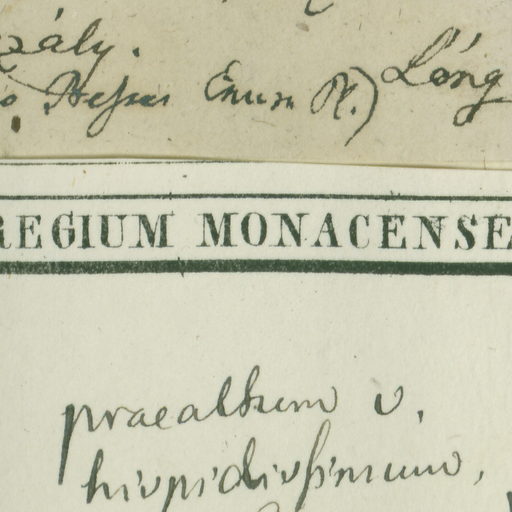 zály.
Enum Pl.) Láng
REGIUM MONACENSE
praealtum v.
hispidissimum,